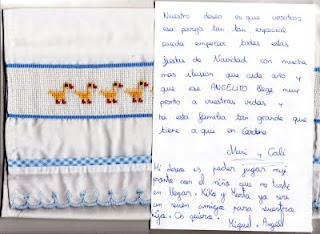 Nuestro deseo es que vosotros
esa pareja tan tan especial
pueda empezar todas estas
fiestas de Navidad con mucha
mas ilusion que cada año y
que ese ANGELITO llegue muy
pronto a vuestras vidas y
a esta familia tan grande que
tiene a que en
Mari y Cali
Mi deseo es poder jugar muy
pronto con el niño que no tarde
en llegar. Kiko y Marta ya sera
un buen amigo para vuestra
hija. Os quiero.
Miguel Angel